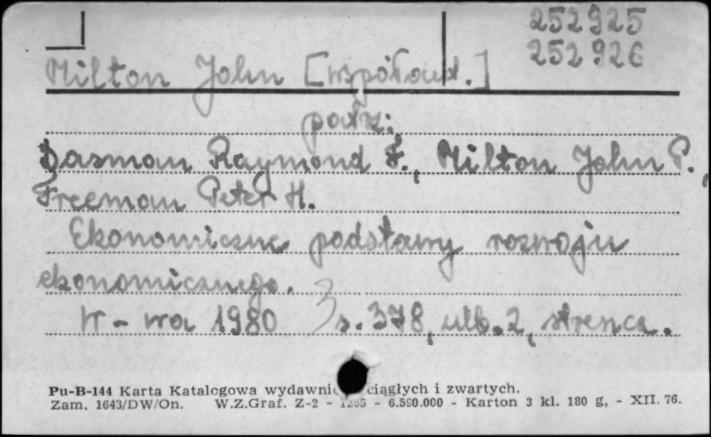 252925
252926
Milton John [współaut.]
patrz:
Dasman Raymond F., Milton John P.,
Freeman Peter H.
Ekonomiczne podstawy rozwoju
ekonomicznego.
W-wa 1980 s. 378, nlb. 2, streszcz.
Pu-B-144 Karta Katalogowa wydawnic ciągłych i zwartych.
Zam. 1643/DW/On. W.Z.Graf. Z-2 - 1265 - 6.590.000 - Karton 3 kl. 180 g, - XII. 76.